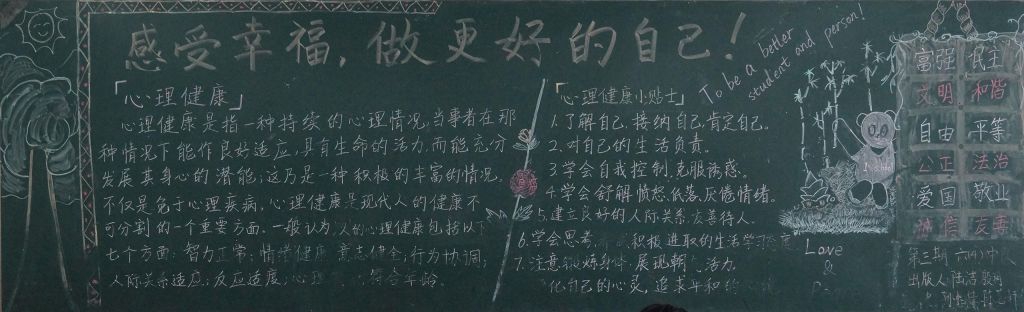 感受幸福，做更好的自己！
「心理健康」
心理健康是指一种持续的心理情况，当事者在那
种情况下能作良好适应，具有生命的活力，而能充分
发展其身心的潜能；这乃是一种积极的丰富的情况。
不仅是免于心理疾病，心理健康是现代人的健康不
可分割的一个重要方面。一般认为，人的心理健康包括以下
七个方面：智力正常；情绪健康；意志健全；行为协调；
人际关系适应；反应适度；心理 符合年龄。
「心理健康小贴士」
1.了解自己，接纳自己，肯定自己。
2.对自己的生活负责。
3.学会自我控制，克服诱惑。
4.学会舒解愤怒、低落、厌倦情绪。
5.建立良好的人际关系，友善待人。
6.学会思考， 积极进取的生活学习态度
7.注意锻炼身体，展现朝气活力，
化自己的心灵，追求平和的心境
To be a better
student and person!
Love
&
富强 民主
文明 和谐
自由 平等
公正 法治
爱国 敬业
诚信 友善
第三期 六(4)中队
出版人:陆洁